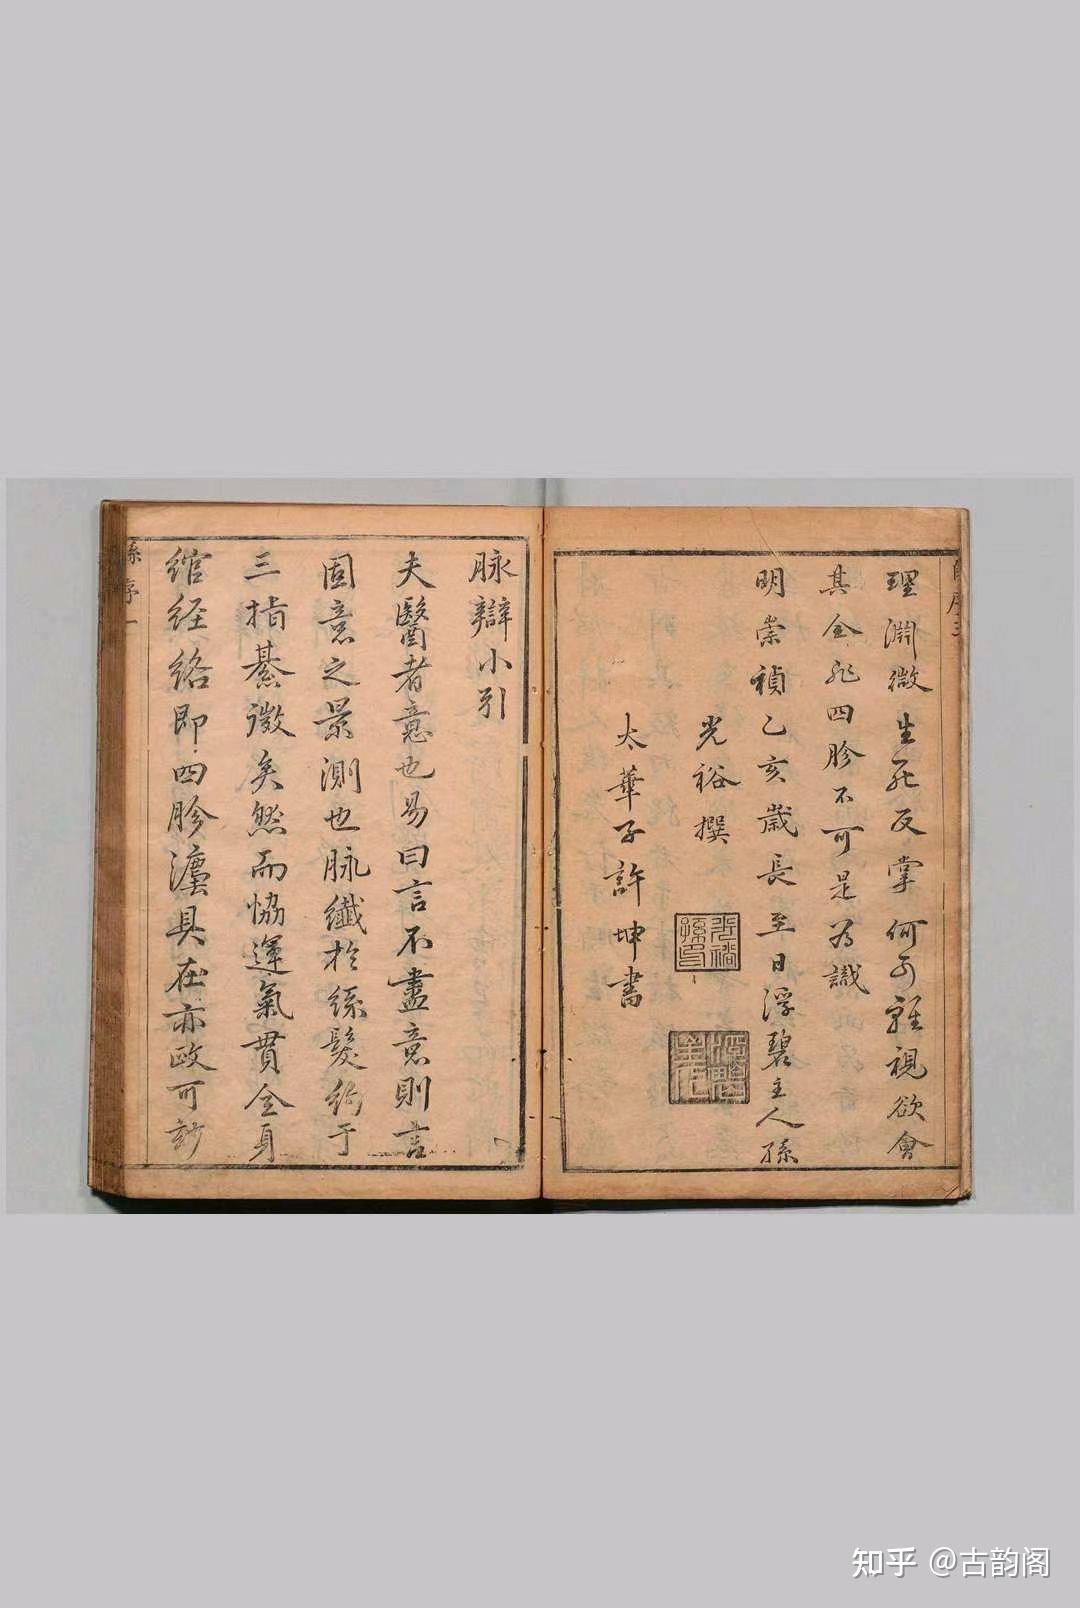 理淵微生死反掌何可雜視欲會
其全非四胗不可是為識
明崇禎乙亥歲長至日浮碧主人孫
光裕撰
太華子許坤書
脉辯小引
夫醫者意也易曰言不盡意則言
固意之景測也脉纖於絲髮約于
三指綦微矣然而恊運氣貫全身
綰經絡即四胗瀍具在亦政可訬
孫序一
知乎 @古韵阁